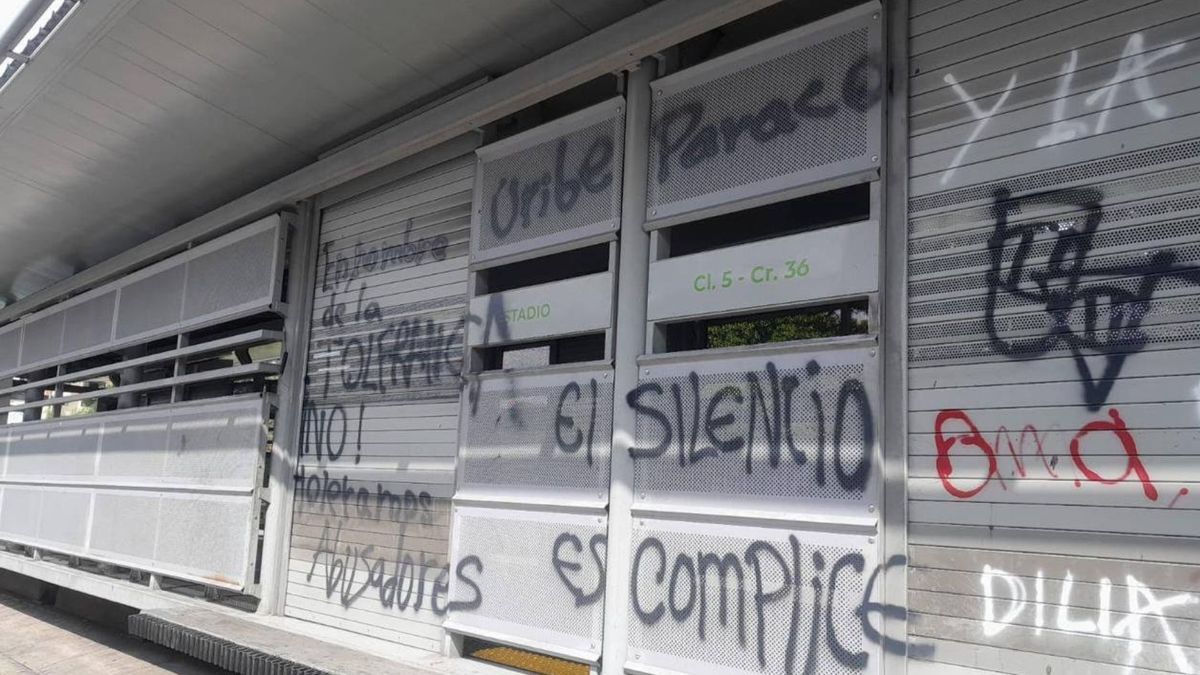 En nombre
de la
TOLERANCIA
¡NO!
toleramos
Abusadores
Uribe Paraco
ESTADIO
Cl. 5 - Cr. 36
El SILENCIO
ES COMPLICE
Y LA
DILIA